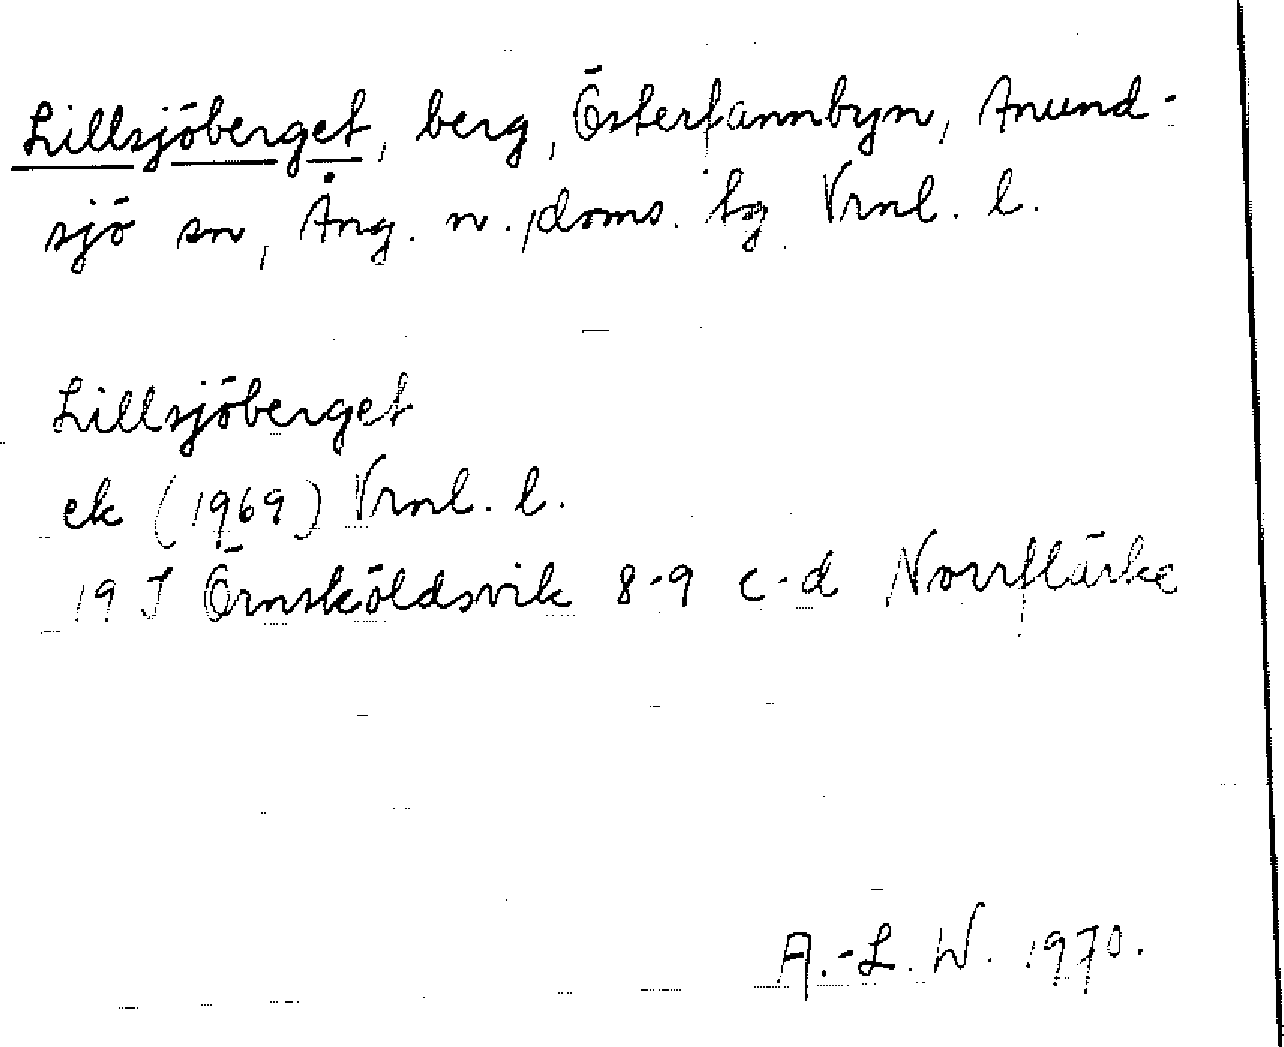 Lillsjöberget, berg, Österfannbyn, Anund-
sjö sn, Ång. n. doms. tg Vrnl. l.
Lillsjöberget
ek (1969) Vrnl. l.
19 J Örnsköldsvik 8-9 c-d Norrflärke
A.-L. W. 1970.